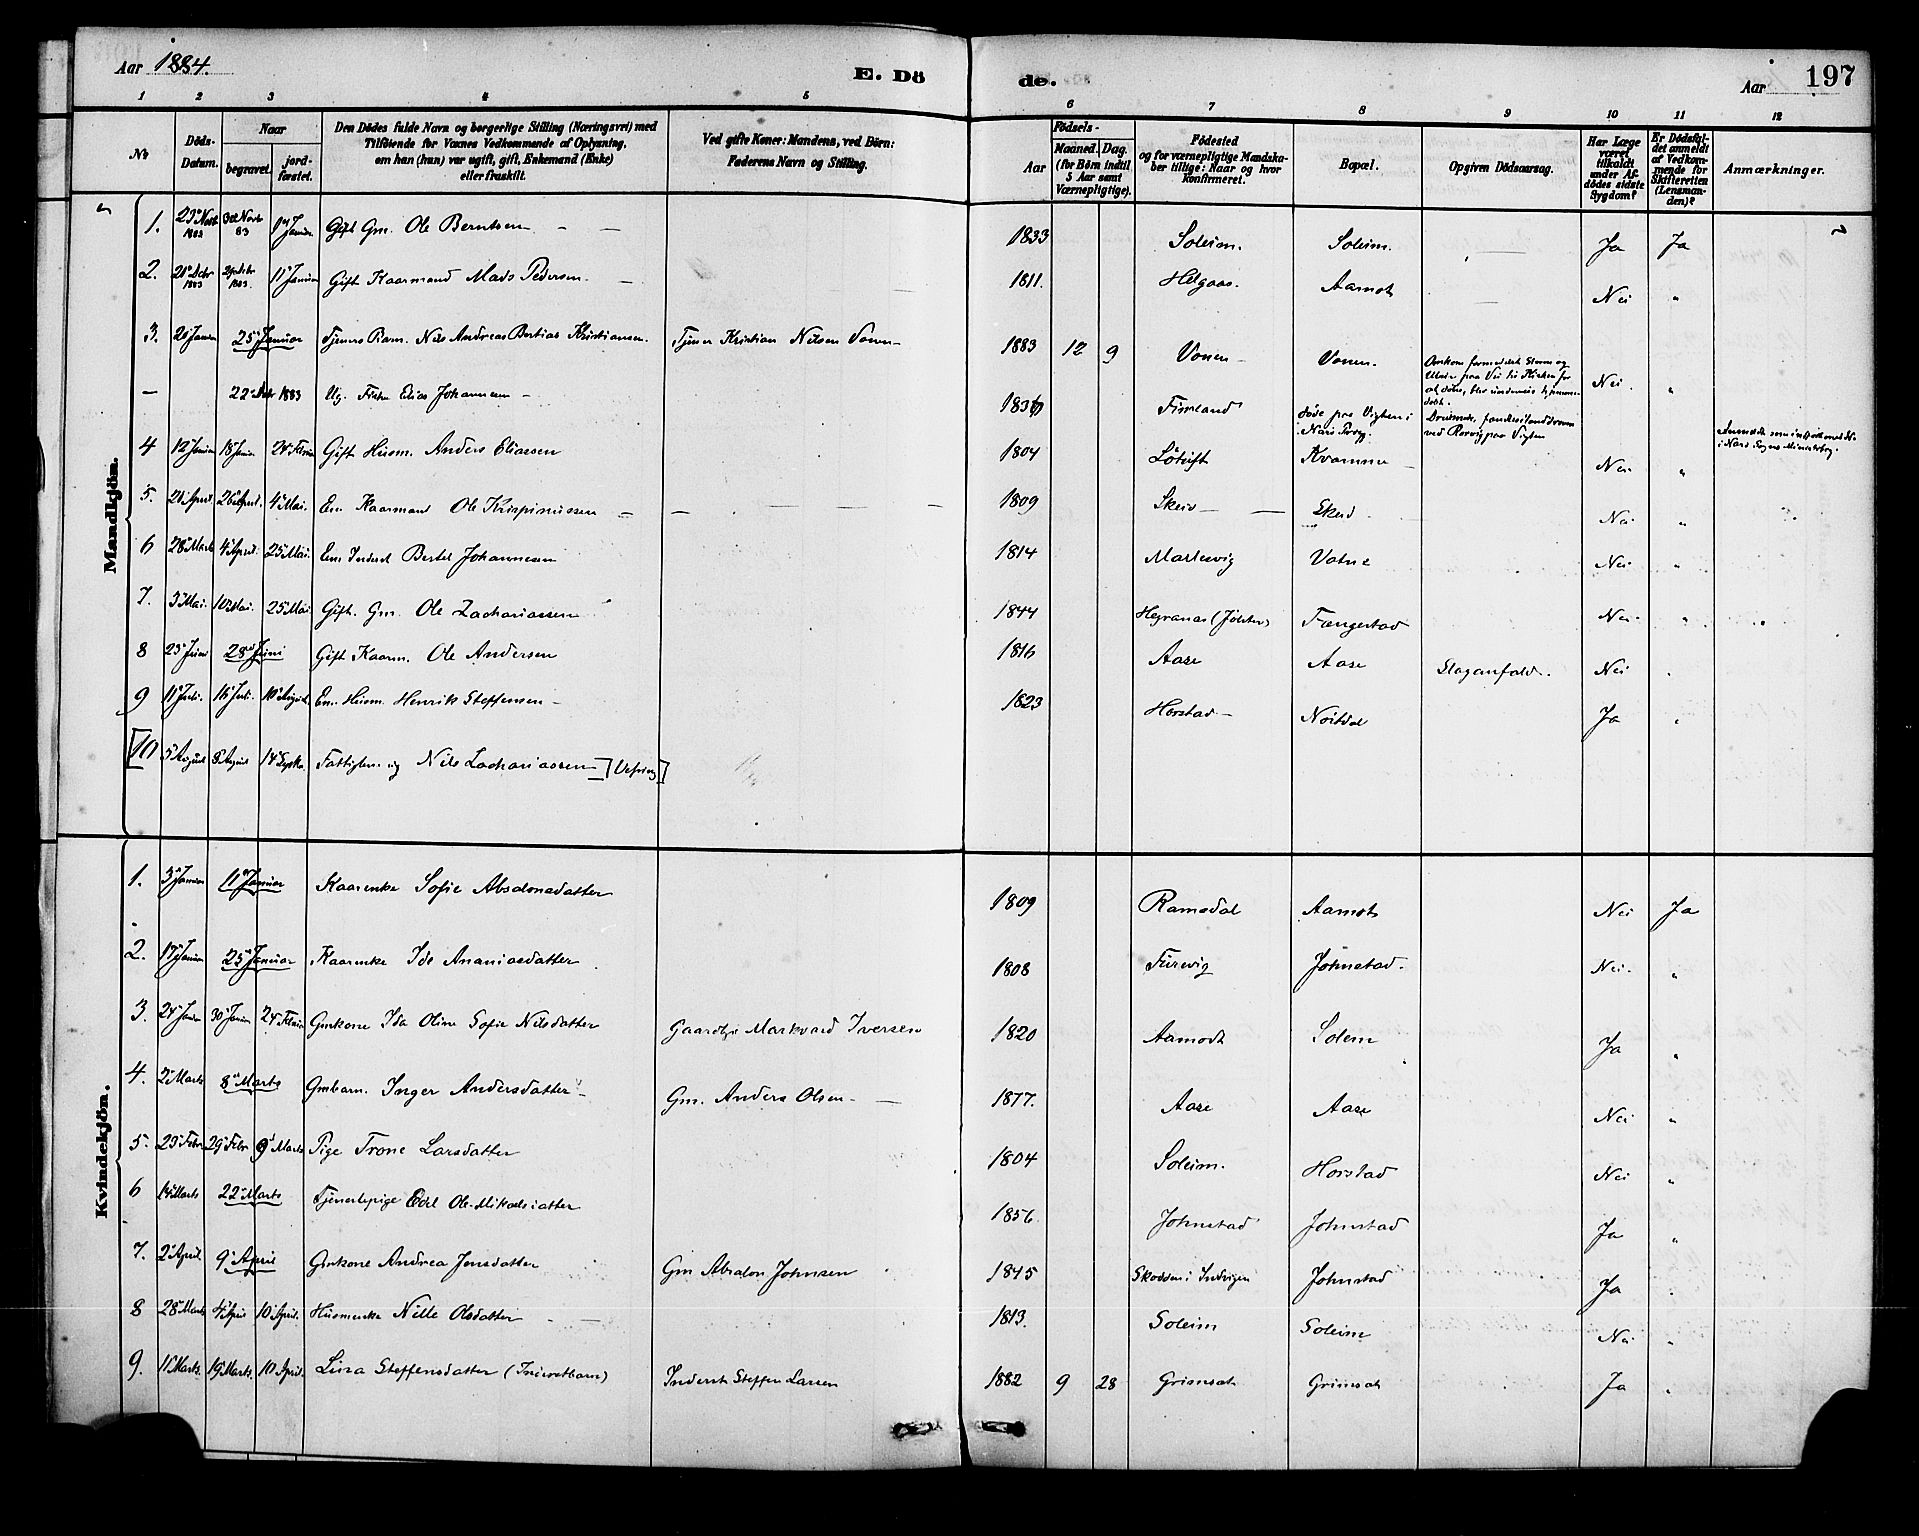 Aar 1884.
E. Dö
de.
Aar
197
1 2 3 4 5 6 7 8 9 10 11 12
No
Döds-Datum.
Naar
begravet.
jord-fæstet.
Den Dödes fulde Navn og borgerlige Stilling (Næringsvei) med
Tilföiende for Voxnes Vedkommende af Oplysning,
om han (hun) var ugift, gift, Enkemand (Enke)
eller fraskilt.
Ved gifte Koner: Mandens, ved Börn:
Faderens Navn og Stilling.
Födsels-
Aar
Maaned. Dag.
(for Börn indtil
5 Aar samt
Værnepligtige).
Födested
og for værnepligtige Mandska-
ber tillige: Naar og hvor
konfirmeret.
Bopæl.
Opgiven Dödsaarsag.
Har Læge
været
tilkaldt
under Af-
dödes sidste
Sygdom?
Er Dödsfal-
det anmeldt
af Vedkom-
mende for
Skifteretten
(Lensman-
den)?
Anmærkninger.
Mandkjön.
1. 23 Novb 1883 30 Novb 83 Januar Gift Gm. Ole Berntsen 1833 Soleim. Soleim. Ja Ja
2. 21 Decbr 1883 1883. 11 Januar Gift Kaarmand Mads Pedersen 1811. Helgaas. Aamot Nei "
3. 20 Januar 25 Januar Tjeners Barn. Nils Andreas Bertias Kristiansen. Tjener Kristian Nilsen Vonen 1883 12 9 Vonen Vonen. Omkom formedelst Storm og paa Vei til Kirken for at döbes, blev hjemmedöbt. Nei. "
— 22 Decbr 1883 Ug. Elias Johannesen 1836 Fimland döde paa Vigten i Næri Druknede, ved Rorvig paa Vigten
4 12 Januar 18 Januar 24 Februar Gift Husm. Anders Eliassen 1804 Kvamme Nei "
5. 21 April. 26 April. 4 Mai. Em Kaarmand Ole Krispinussen 1809 Skeid Skeid Nei "
6 28 Marts 4 April. 25 Mai. Em Inderst Bertel Johannesen 1814 Marlesvig Vatne Nei "
7. 3 Mai. 10 Mai. 25 Mai Gift. Gm. Ole Zachariassen 1844 Hegranæs (Jölster) Fængestad Nei "
8 23 Juni 28 Juni Gift Kaarm. Ole Andersen 1816 Aase Aase Slaganfald. Nei
9 11 Juli. 16 Juli. 10 August. Em. Husm. Henrik Steffensen 1823 Horstad Nöitdal Ja
[10 5 August 8 August 14 Septbr. Fattiglem. ug Nils Zachariassen] [Vefring]
Kvindekjön.
1. 3 Januar 11 Januar Kaarenke Sofie Absalonsdatter 1809 Ramsdal Aamot Nei Ja
2. 17 Januar 25 Januar Kaarenke Ida Ananiasdatter 1808 Furevig Johnstad. Nei. "
3. 24 Januar 30 Januar 24 Februar Gmkone Ida Oline Sofie Nilsdatter Gaardbr Markvard Iversen 1820 Aamodt Soleim Ja "
4. 2 Marts 8 Marts Gmbarn. Inger Andersdatter Gm. Anders Olsen 1877. Aase Aase Nei "
5. 23 Febr 29 Febr 9 Marts Pige Trone Larsdatter 1804 Soleim. Horstad Nei "
6 14 Marts 22 Marts Tjenestepige Edel Ole-Mikaelsdatter 1856 Johnstad Johnstad Ja "
7. 2 April. 9 April Gmkone Andrea Jensdatter Gm Absalon Johnsen 1845 Skodden i Indvigen Johnstad Ja "
8 28 Marts 4 April 10 April. Husmenke Nille Olsdatter 1813. Soleim Soleim Nei "
9. 11 Marts. 19 Marts. 10 April. Lina Steffensdatter (Inderstbarn) Inderst Steffen Larsen 1882 9 28 Grimset Grimset Ja "